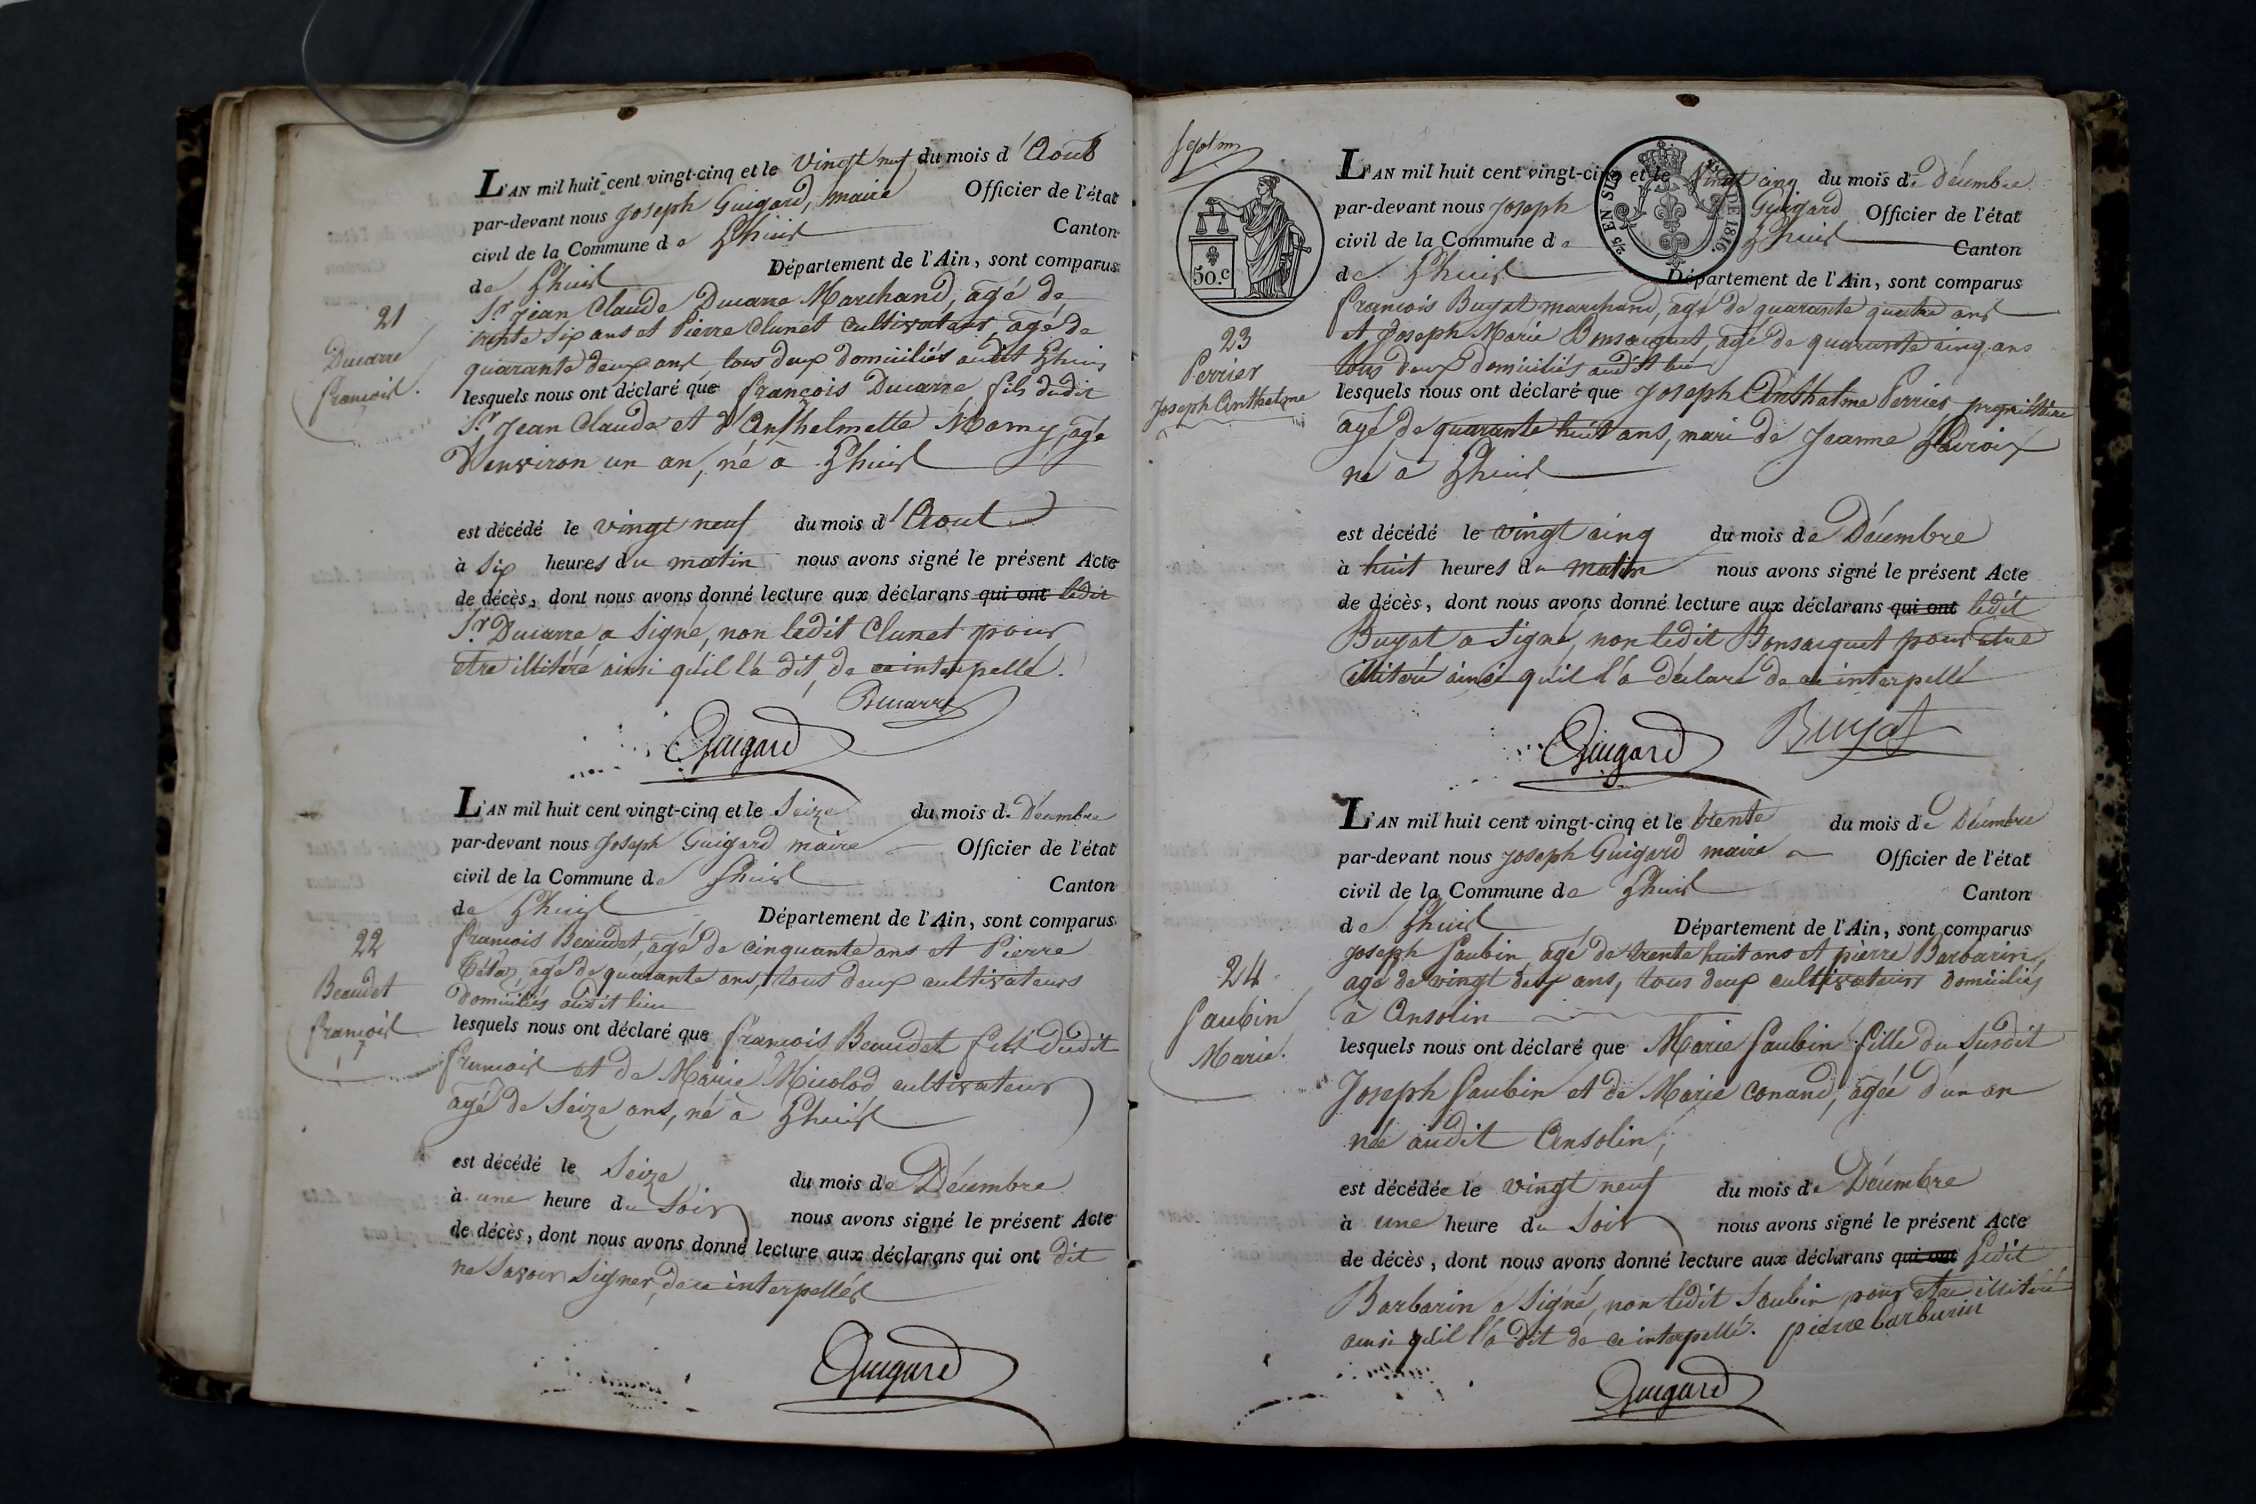 L'AN mil huit cent vingt-cinq et le vingt neuf du mois d'Aout
par-devant nous Joseph Guigard, maire Officier de l'état
civil de la Commune de Lhuis Canton
de Lhuis Département de l'Ain, sont comparus
21
Ducarre
françois
Sr. Jean Claude Ducarre Marchand, agé de
trente six ans et Pierre Clunet cultivateur, agé de
quarante deux ans, tous deux domiciliés audit Lhuis
lesquels nous ont déclaré que françois Ducarre fils dudit
Sr. Jean Claude et d'Anthelmette Mamy, agé
d'environ un an, né à Lhuis
est décédé le vingt neuf du mois d'Aout
à six heures du matin nous avons signé le présent Acte
de décès, dont nous avons donné lecture aux déclarans qui ont ledit
Sr. Ducarre a signé, non ledit Clunet pour
etre illitéré ainsi qu'il l'a dit, de ce interpellé.
Ducarre
Guigard
L'AN mil huit cent vingt-cinq et le seize du mois de Décembre
par-devant nous Joseph Guigard maire Officier de l'état
civil de la Commune de Lhuis Canton
de Lhuis Département de l'Ain, sont comparus
22
Beaudet
françois
françois Beaudet, agé de cinquante ans et Pierre
agé de quarante ans, tous deux cultivateurs
domiciliés audit lieu
lesquels nous ont déclaré que françois Beaudet fils dudit
françois et de Marie Micolod cultivateur
agé de seize ans, né à Lhuis
est décédé le seize du mois de Décembre
à une heure du soir nous avons signé le présent Acte
de décès, dont nous avons donné lecture aux déclarans qui ont dit
ne savoir signer, de ce interpellés
Guigard
50.c
25 EN SUS DE 1816.
L'AN mil huit cent vingt-cinq et le vingt cinq du mois de Décembre
par-devant nous Joseph Guigard Officier de l'état
civil de la Commune de Lhuis Canton
de Lhuis Département de l'Ain, sont comparus
23
Perrier
Joseph Anthelme
francois Buyat marchand, agé de quarante quatre ans
et Joseph Marie Bonsacquet, agé de quarante cinq ans
tous deux domiciliés audit lieu
lesquels nous ont déclaré que Joseph Anthelme Perrier, propriétaire
agé de quarante huit ans, mari de Jeanne Lacroix
né à Lhuis
est décédé le vingt cinq du mois de Décembre
à huit heures du matin nous avons signé le présent Acte
de décès, dont nous avons donné lecture aux déclarans qui ont ledit
Buyat a signé, non ledit Bonsacquet pour etre
illitéré ainsi qu'il l'a déclaré de ce interpellé
Guigard Buyat
L'AN mil huit cent vingt-cinq et le trente du mois de Décembre
par-devant nous Joseph Guigard maire Officier de l'état
civil de la Commune de Lhuis Canton
de Lhuis Département de l'Ain, sont comparus
24
Saubin
Marie.
Joseph Saubin, agé de trente huit ans et pierre Barbarin,
agé de vingt deux ans, tous deux cultivateurs domiciliés
à Ansolin
lesquels nous ont déclaré que Marie Saubin fille du susdit
Joseph Saubin et de Marie Conand, agée d'un an
née audit Ansolin,
est décédée le vingt neuf du mois de Décembre
à une heure du soir nous avons signé le présent Acte
de décès, dont nous avons donné lecture aux déclarans qui ont Ledit
Barbarin a signé, non ledit Saubin pour etre illitéré
ainsi qu'il l'a dit de ce interpellé. pierre barbarin
Guigard